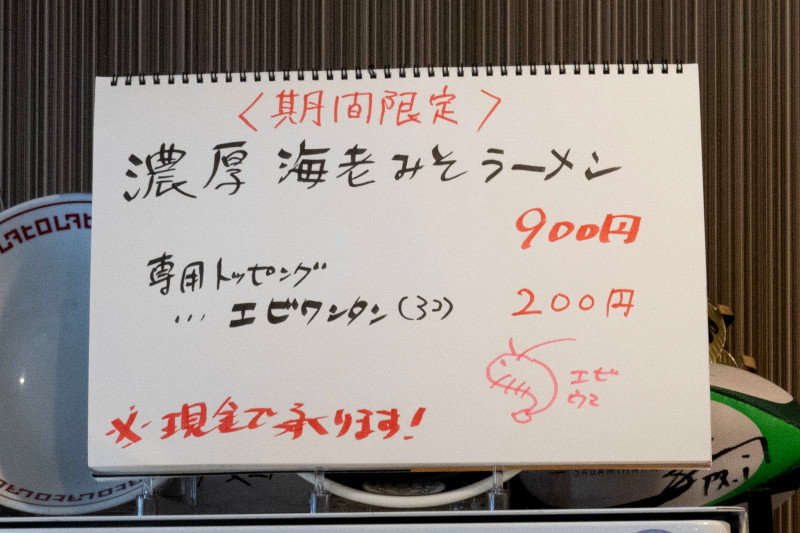 〈期間限定〉
濃厚 海老みそラーメン
900円
専用トッピング
... エビワンタン(3コ) 200円
エビ
ウマ
※現金で承ります!